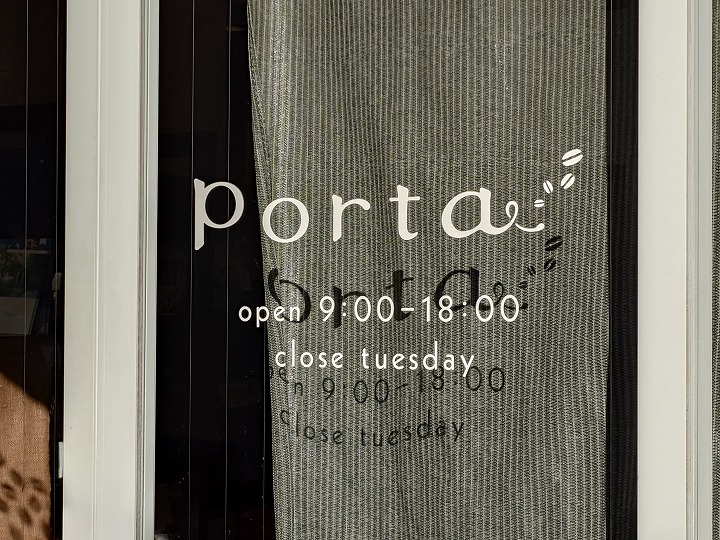 porta
open 9:00-18:00
close tuesday